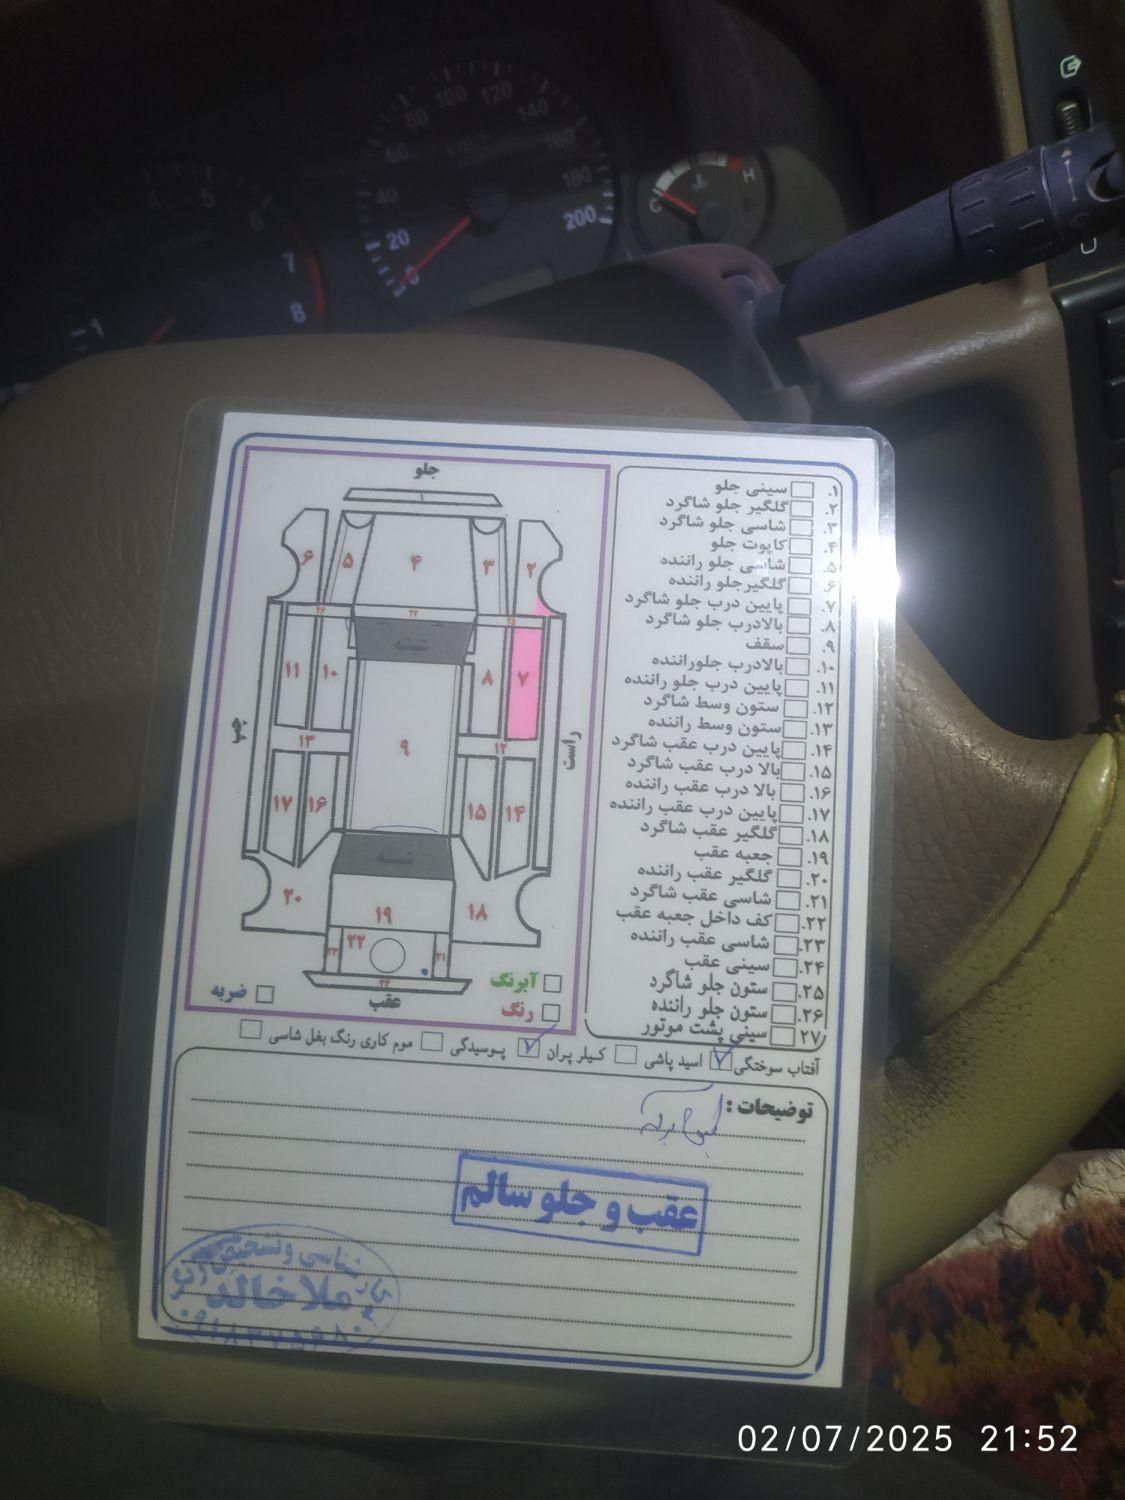 100
120
80
140
60
160
40
180
20
200
0
4
5
6
7
8
1
C
H
جلو
۱
۶
۵
۴
۳
۲
۲۶
۲۷
۲۵
شیشه
۱۱
۱۰
۸
۷
۹
۱۳
۱۲
چپ
راست
۱۷
۱۶
۱۵
۱۴
شیشه
۲۰
۱۹
۱۸
۲۳
۲۲
۲۱
۲۴
عقب
آبرنگ
رنگ
ضربه
۱. سینی جلو
۲. گلگیر جلو شاگرد
۳. شاسی جلو شاگرد
۴. کاپوت جلو
۵. شاسی جلو راننده
۶. گلگیرجلو راننده
۷. پایین درب جلو شاگرد
۸. بالادرب جلو شاگرد
۹. سقف
۱۰. بالادرب جلوراننده
۱۱. پایین درب جلو راننده
۱۲. ستون وسط شاگرد
۱۳. ستون وسط راننده
۱۴. پایین درب عقب شاگرد
۱۵. بالا درب عقب شاگرد
۱۶. بالا درب عقب راننده
۱۷. پایین درب عقب راننده
۱۸. گلگیر عقب شاگرد
۱۹. جعبه عقب
۲۰. گلگیر عقب راننده
۲۱. شاسی عقب شاگرد
۲۲. کف داخل جعبه عقب
۲۳. شاسی عقب راننده
۲۴. سینی عقب
۲۵. ستون جلو شاگرد
۲۶. ستون جلو راننده
۲۷. سینی پشت موتور
آفتاب سوختگی اسید پاشی کیلر پران پوسیدگی موم کاری رنگ بغل شاسی
توضیحات :
عقب و جلو سالم
کارشناسی و تشخیص رنگ
ملاخالد
02/07/2025 21:52